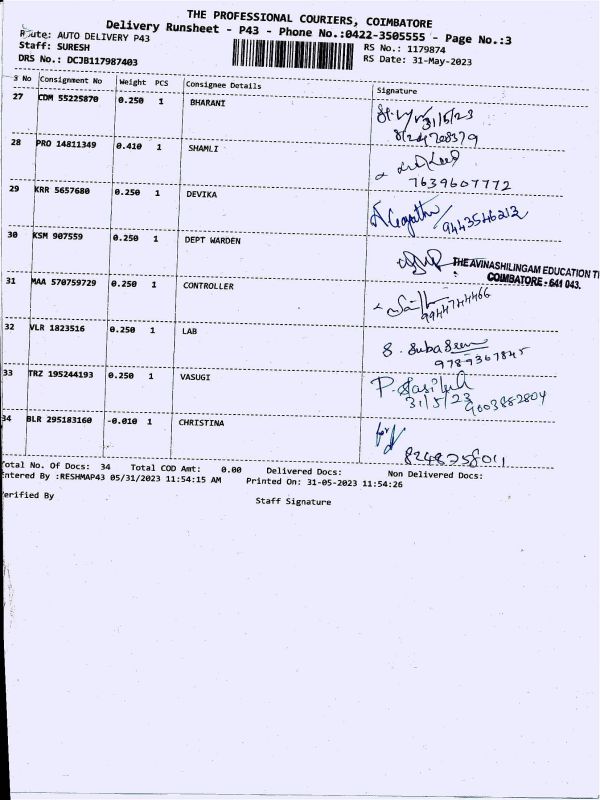 THE PROFESSIONAL COURIERS, COIMBATORE
Delivery Runsheet - P43 - Phone No.:0422-3505555 - Page No.:3
Route: AUTO DELIVERY P43
RS No.: 1179874
Staff: SURESH
RS Date: 31-May-2023
DRS No.: DCJB117987403
S No Consignment No Weight PCS Consignee Details Signature
27 CDM 55225870 0.250 1 BHARANI
31/5/23
28 PRO 14811349 0.410 1 SHAMLI
7639607772
29 KRR 5657680 0.250 1 DEVIKA
9443546212
30 KSM 907559 0.250 1 DEPT WARDEN
THE AVINASHILINGAM EDUCATION T
COIMBATORE - 641 043.
31 MAA 570759729 0.250 1 CONTROLLER
9944744466
32 VLR 1823516 0.250 1 LAB
S.
9789367845
33 TRZ 195244193 0.250 1 VASUGI
P.
31/5/23 9003882804
34 BLR 295183160 -0.010 1 CHRISTINA
for
8248758011
Total No. Of Docs: 34 Total COD Amt: 0.00 Delivered Docs: Non Delivered Docs:
Entered By :RESHMAP43 05/31/2023 11:54:15 AM Printed On: 31-05-2023 11:54:26
Verified By Staff Signature